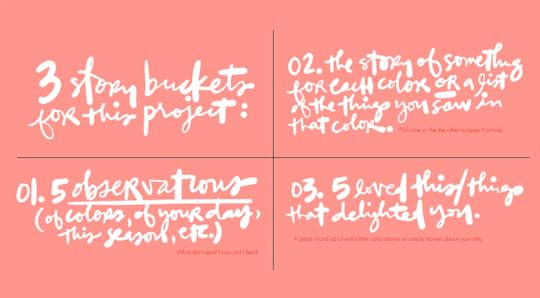 3 story buckets
for this project:
01. 5 observations
(of colors, of your day,
this season, etc.)
What did I see? How did I feel?
02. the story of something
for each color OR a list
of the things you saw in
that color.
Pick one or the the other to keep it simple.
03. 5 loved this/things
that delighted you.
A great round up of extra little color stories or simply stories about your day.